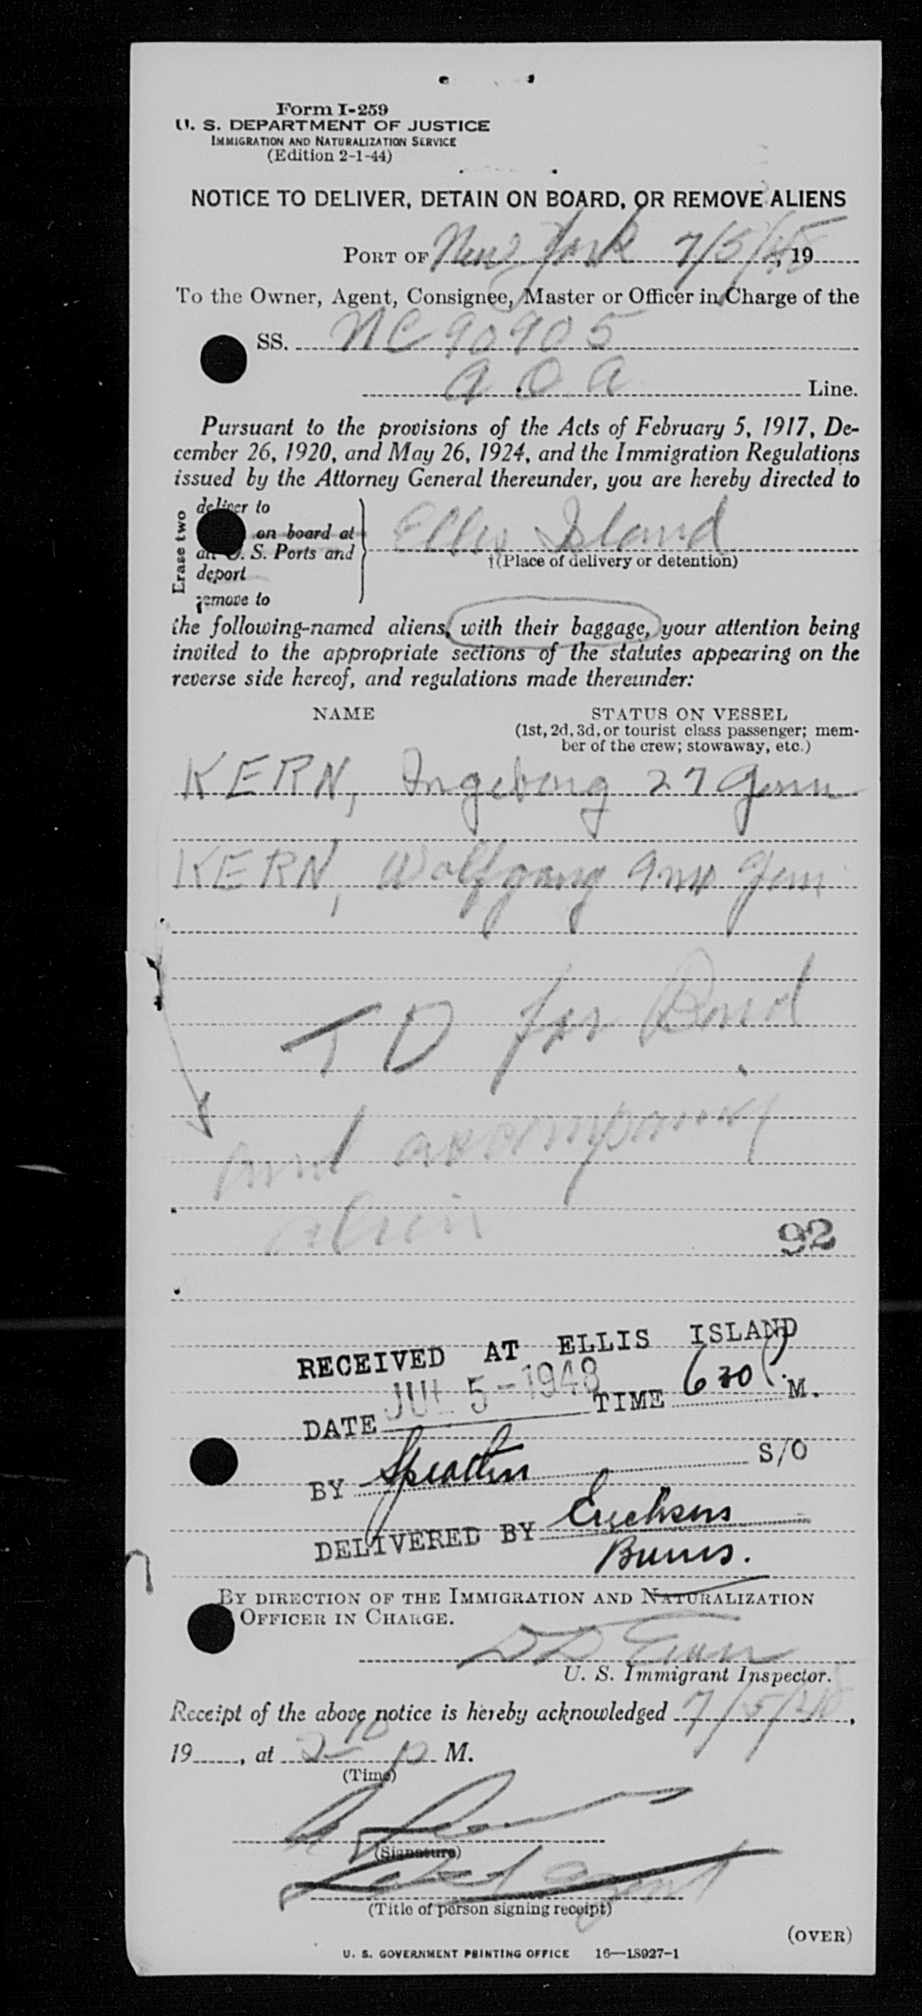 Form I-259
U. S. DEPARTMENT OF JUSTICE
IMMIGRATION AND NATURALIZATION SERVICE
(Edition 2-1-44)
NOTICE TO DELIVER, DETAIN ON BOARD, OR REMOVE ALIENS
PORT OF New York 7/5/48, 19
To the Owner, Agent, Consignee, Master or Officer in Charge of the
SS. NC 90905
A.O.A Line.
Pursuant to the provisions of the Acts of February 5, 1917, De-
cember 26, 1920, and May 26, 1924, and the Immigration Regulations
issued by the Attorney General thereunder, you are hereby directed to
Erase two
deliver to
on board at
all U. S. Ports and
deport
remove to
Ellis Island
(Place of delivery or detention)
the following-named aliens, with their baggage, your attention being
invited to the appropriate sections of the statutes appearing on the
reverse side hereof, and regulations made thereunder:
NAME STATUS ON VESSEL
(1st, 2d, 3d, or tourist class passenger; mem-
ber of the crew; stowaway, etc.)
KERN, Ingeborg 27 Germ
KERN, Wolfgang 9 mo Germ
TD for Bond
and accompany
alien
92
RECEIVED AT ELLIS ISLAND
DATE JUL 5-1948 TIME 630 P. M.
BY S/O
DELIVERED BY
Burns.
BY DIRECTION OF THE IMMIGRATION AND NATURALIZATION
OFFICER IN CHARGE.
U. S. Immigrant Inspector.
Receipt of the above notice is hereby acknowledged 7/5/48,
19, at 2-10 p M.
(Time)
(Signature)
Agent
(Title of person signing receipt)
(OVER)
U. S. GOVERNMENT PRINTING OFFICE 16—18927-1